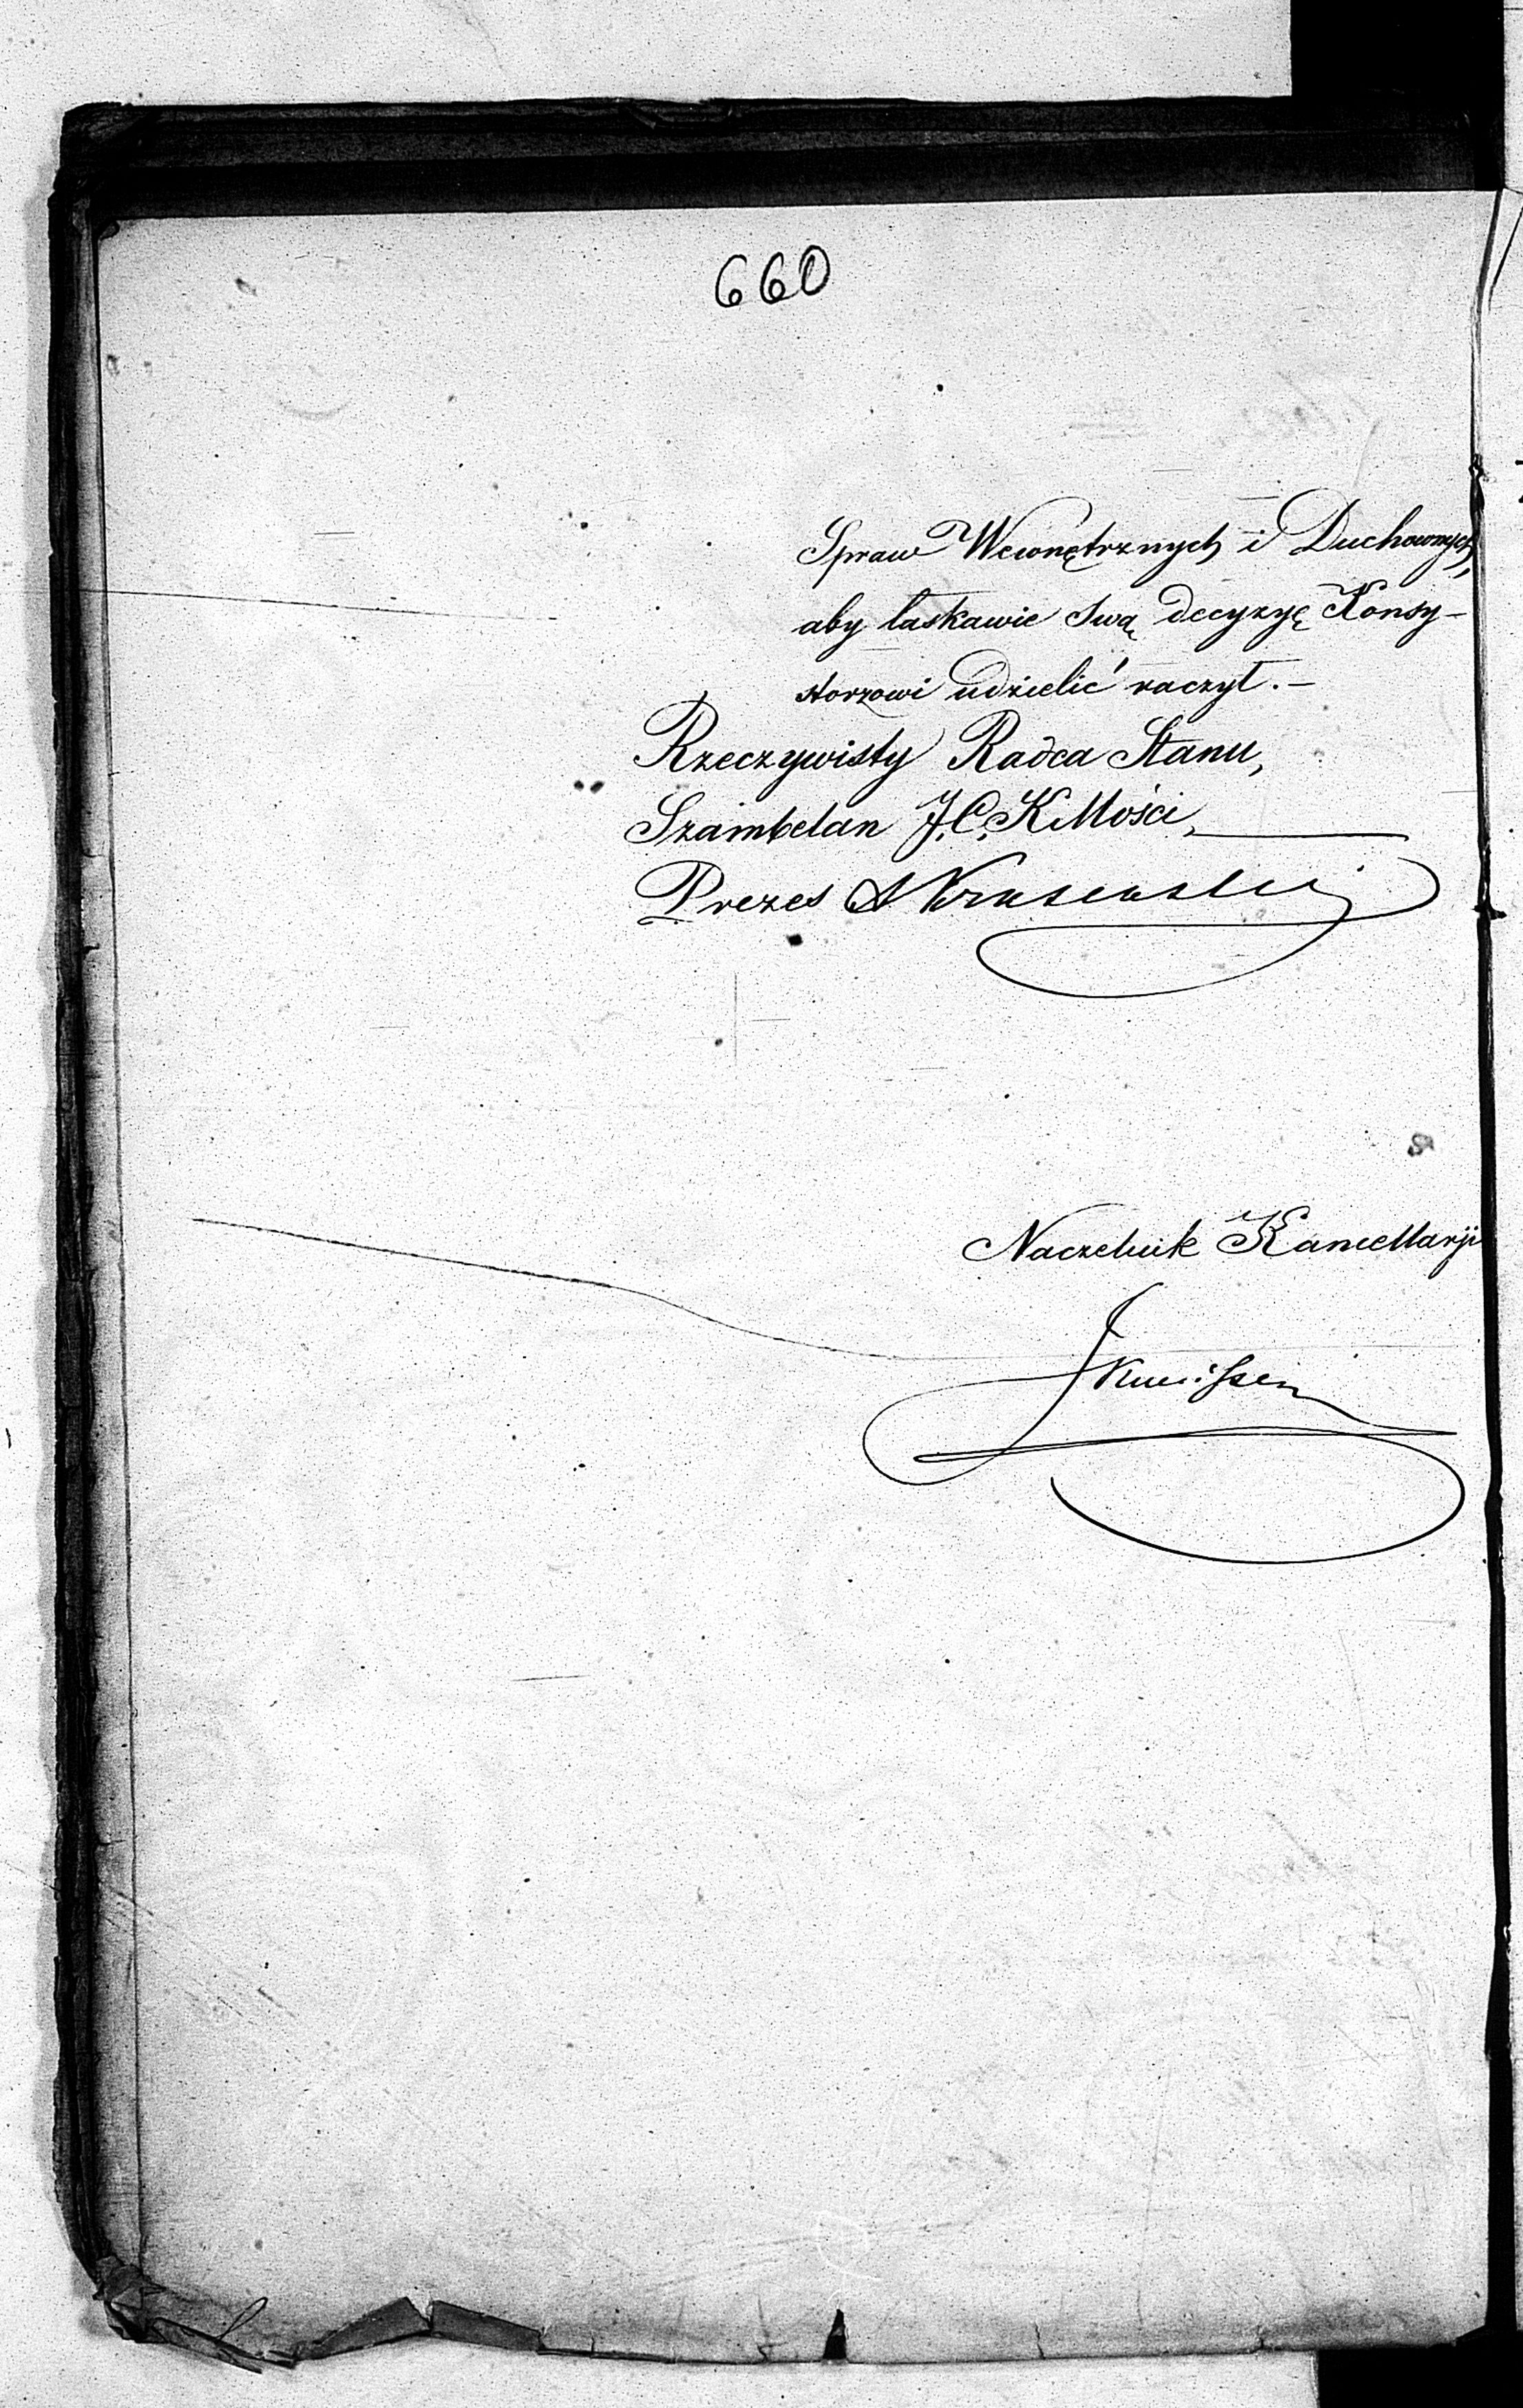 660
Spraw Wewnętrznych i Duchownych,
aby łaskawie Swą decyzyę Konsy-
storzowi udzielić raczył.—
Rzeczywisty Radca Stanu,
Szambelan J.C.K.Mości,
Prezes
Naczelnik Kancellaryi